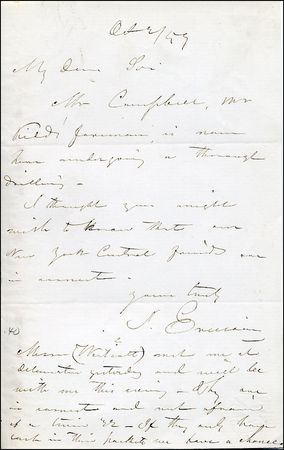 Oct 2/59
My Dear Sir
Mr Campbell, Mr
Fields' foreman, is now
here undergoing a thorough
drilling -
I thought you might
wish to know that our
New York Central friends are
in earnest -
yours truly
J. Ericsson
met me at
Delamater yesterday and will be
with me this evening - They are
in earnest and not afraid
of a - If they only keep
cash in their pockets we have a chance.